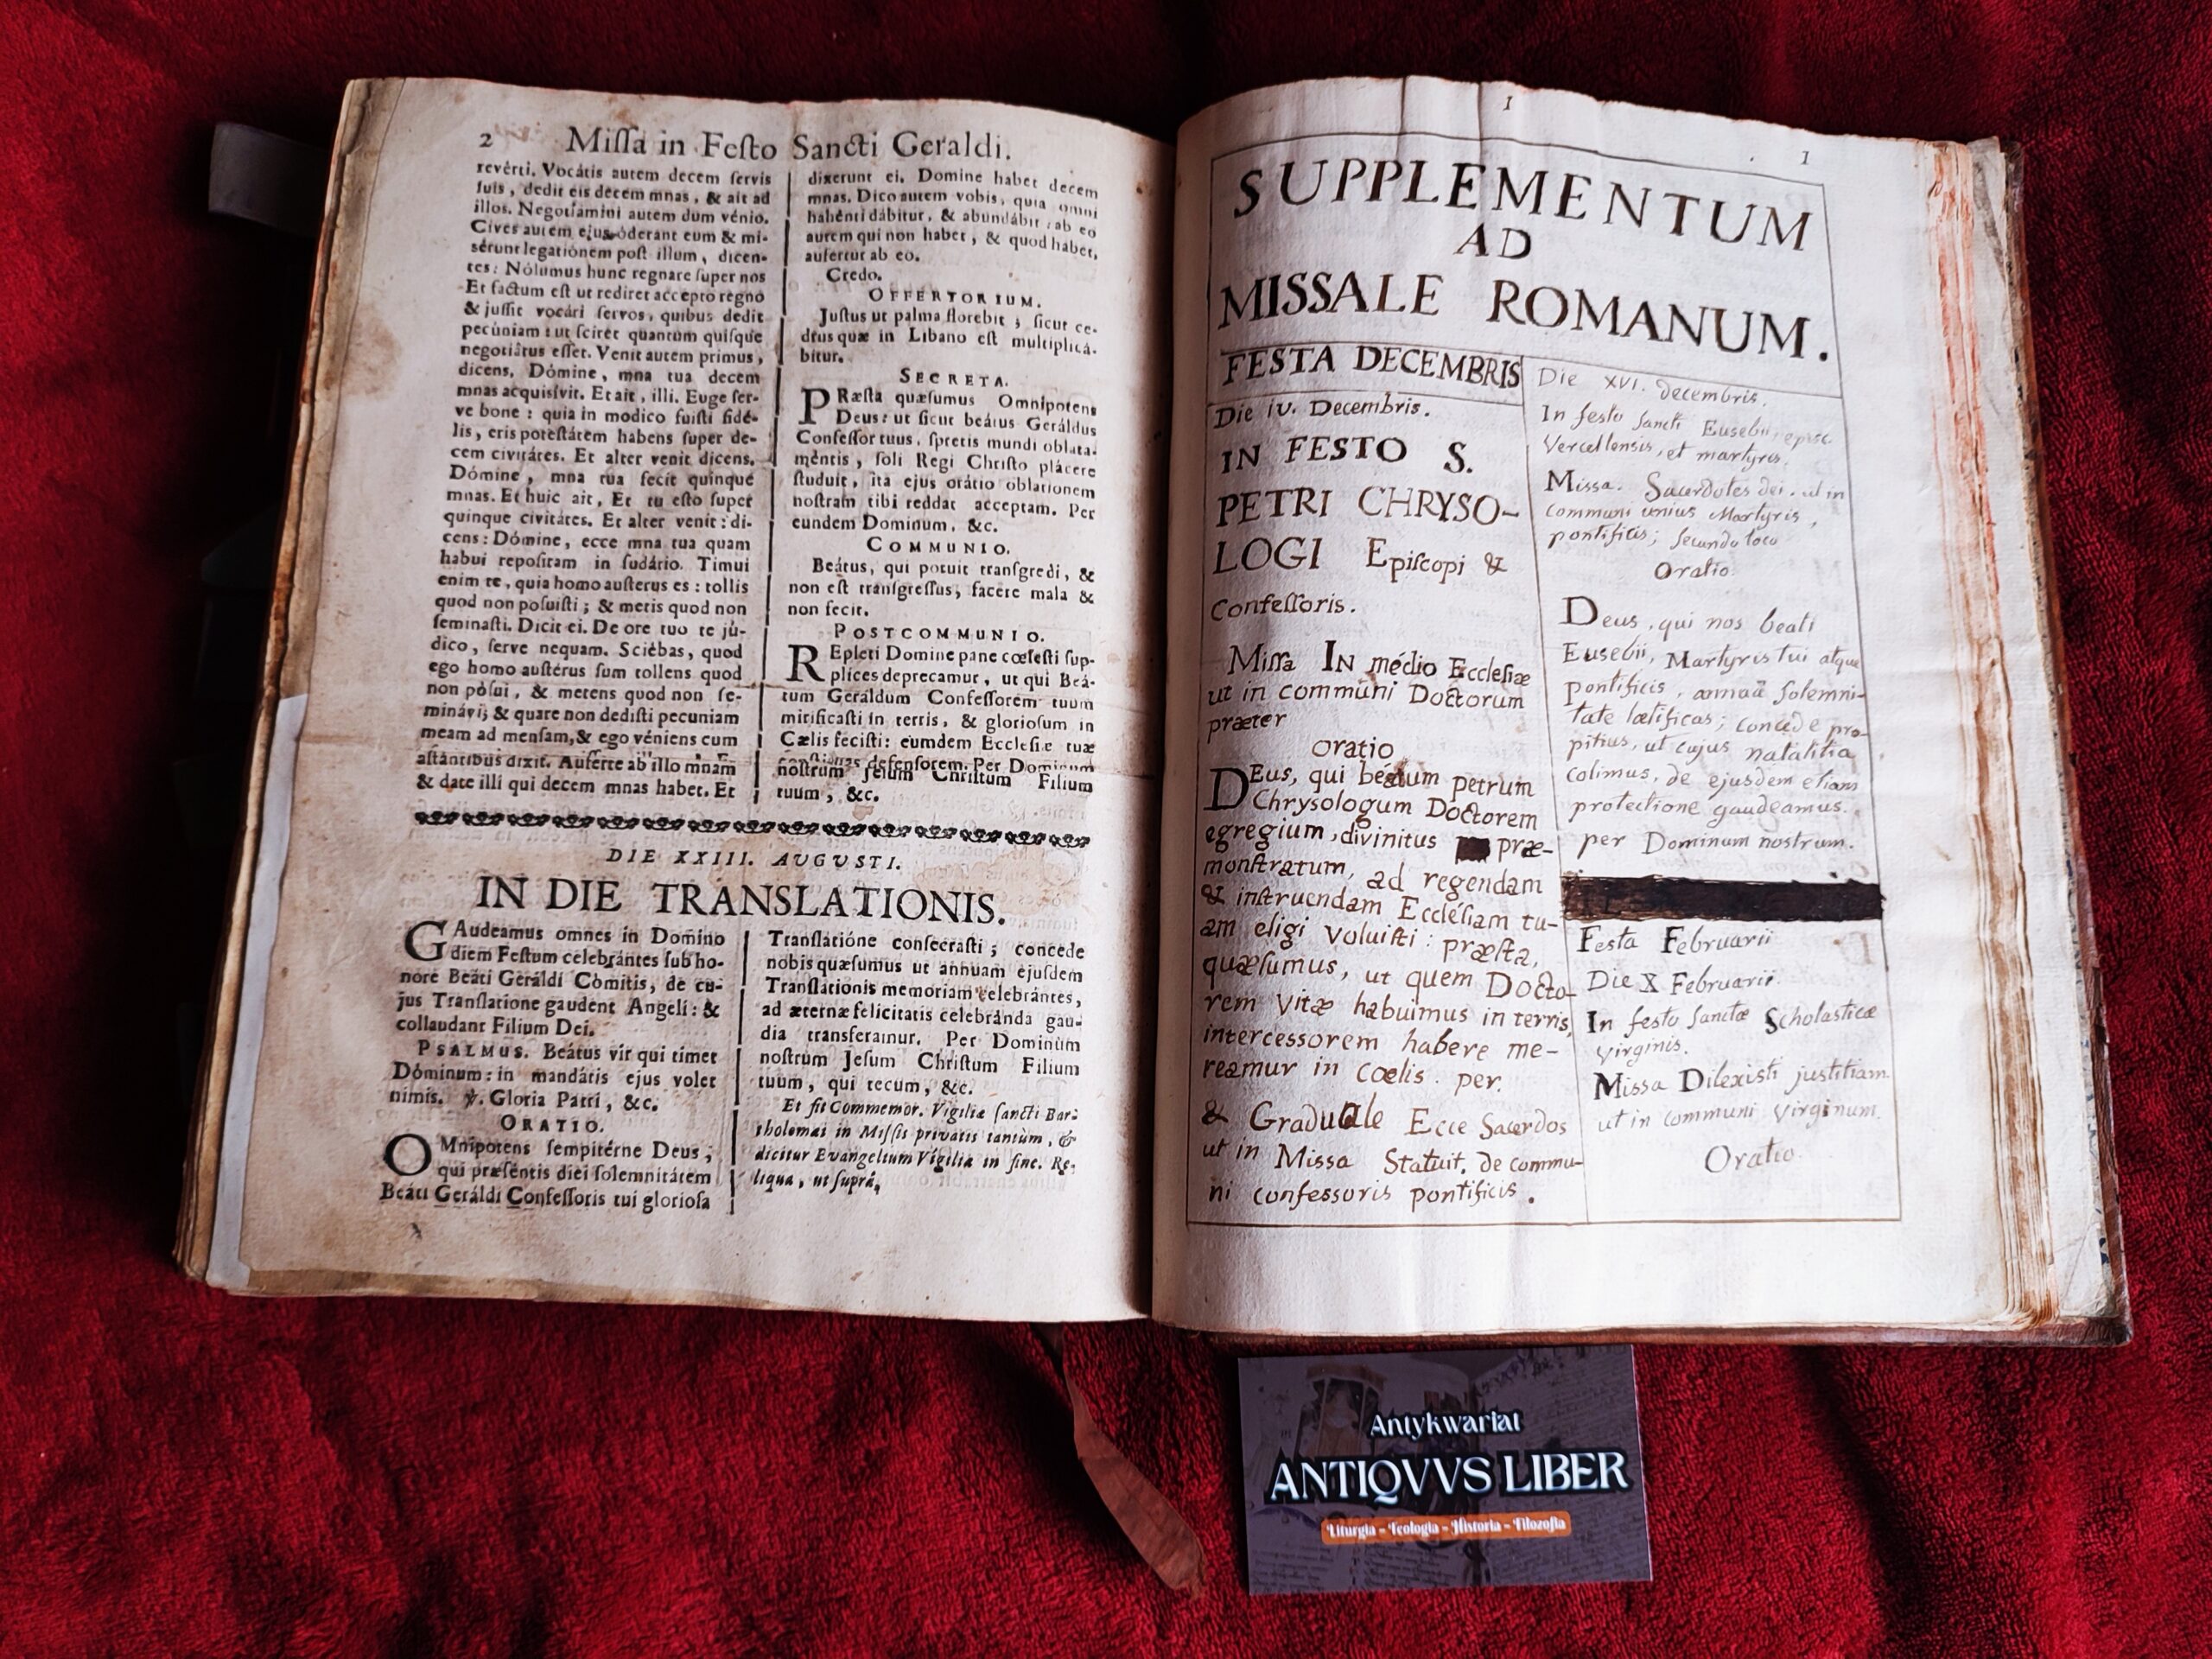 2 Miſſa in Feſto Sancti Geraldi.
revérti. Vocátis autem decem ſervis
ſuis, dedit eis decem mnas, & ait ad
illos. Negotiamini autem dum vénio.
Cives autem ejus óderant eum & mi-
sérunt legatiónem poſt illum, dicen-
tes: Nólumus hunc regnare ſuper nos
Et factum eſt ut rediret accepto regno
& juſſit vocári ſervos, quibus dedit
pecúniam: ut ſciret quantum quiſque
negotiátus eſſet. Venit autem primus,
dicens. Dómine, mna tua decem
mnas acquisívit. Et ait, illi. Euge ſer-
ve bone: quia in modico fuiſti fidé-
lis, eris poteſtátem habens ſuper de-
cem civitátes. Et alter venit dicens.
Dómine, mna tua fecit quinque
mnas. Et huic ait, Et tu eſto ſuper
quinque civitátes. Et alter venit: di-
cens: Dómine, ecce mna tua quam
habui repoſitam in ſudário. Timui
enim te, quia homo auſterus es: tollis
quod non poſuiſti; & metis quod non
ſeminaſti. Dicit ei. De ore tuo te jú-
dico, ſerve nequam. Sciébas, quod
ego homo auſtérus ſum tollens quod
non pósui, & metens quod non ſe-
minávi; & quare non dediſti pecuniam
meam ad menſam, & ego véniens cum
aſtántibus dixit. Auferte ab illo mnam
& date illi qui decem mnas habet. Et
dixerunt ei. Domine habet decem
mnas. Dico autem vobis, quia omni
habénti dábitur, & abundábit: ab eo
autem qui non habet, & quod habet,
aufertur ab eo.
Credo.
OFFERTORIUM.
Juſtus ut palma florebit; ſicut ce-
drus quæ in Libano eſt multiplicá-
bitur.
SECRETA.
PRæſta quæſumus Omnipotens
Deus: ut ſicut beátus Geráldus
Confeſſor tuus, ſpretis mundi oblata-
méntis, ſoli Regi Chriſto plácere
ſtuduit, ita ejus orátio oblationem
noſtram tibi reddat acceptam. Per
eundem Dominum, &c.
COMMUNIO.
Beátus, qui potuit tranſgredi, &
non eſt tranſgreſſus, facere mala &
non fecit.
POSTCOMMUNIO.
REpleti Domine pane cœleſti ſup-
plices deprecamur, ut qui Beá-
tum Geráldum Confeſſorem tuum
mirificaſti in terris, & glorioſum in
Cælis feciſti: eumdem Eccleſiæ tuæ
conſtituas defenſorem. Per Dominum
noſtrum Jeſum Chriſtum Filium
tuum, &c.
DIE XXIII. AUGUSTI.
IN DIE TRANSLATIONIS.
GAudeamus omnes in Domino
diem Feſtum celebrántes ſub ho-
nore Beáti Geráldi Cómitis, de cu-
jus Tranſlatione gaudent Angeli: &
collaudant Filium Dei.
PSALMUS. Beátus vir qui timet
Dóminum: in mandátis ejus volet
nimis. ℣. Gloria Patri, &c.
ORATIO.
OMnipotens ſempitérne Deus;
qui præséntis diei ſolemnitátem
Beáti Geráldi Confeſſoris tui glorioſa
Tranſlatióne conſecraſti; concede
nobis quæſumus ut annuam ejuſdem
Tranſlátionis memoriam celebrántes,
ad æternæ felicitatis celebránda gau-
dia transferamur. Per Dominum
noſtrum Jeſum Chriſtum Filium
tuum, qui tecum, &c.
Et fit Commemor. Vigiliæ ſancti Bar-
tholomæi in Miſſis privatis tantùm, &
dicitur Evangelium Vigiliæ in fine. Re-
liqua, ut ſuprà.
1
1
SUPPLEMENTUM
AD
MISSALE ROMANUM.
FESTA DECEMBRIS
Die iv. Decembris.
IN FESTO S.
PETRI CHRYSO-
LOGI Epiſcopi &
Confeſſoris.
Miſſa IN médio Eccleſiæ
ut in communi Doctorum
præter
oratio
DEus, qui beatum petrum
Chrysologum Doctorem
egregium, divinitus præ-
monſtratum, ad regendam
& inſtruendam Eccléſiam tu-
am eligi voluiſti: præſta,
quæſumus, ut quem Docto-
rem vitæ habuimus in terris,
intercessorem habere me-
reamur in cœlis. per.
& Graduale Ecce Sacerdos
ut in Missa Statuit, de commu-
ni confessoris pontificis.
Die XVI. decembris.
In feſto ſancti Eusebii, episc.
Vercellensis, et martyris.
Missa. Sacerdotes dei. ut in
communi unius Martyris,
pontificis; ſecundo loco
Oratio
Deus, qui nos beati
Eusebii, Martyris tui atque
pontificis, annuâ ſolemni-
tate lætificas; concede pro-
pitius, ut cujus natalitia
colimus, de ejusdem etiam
protectione gaudeamus.
per Dominum nostrum.
Festa Februarii
Die X Februarii.
In feſto ſanctæ Scholasticæ
virginis.
Missa Dilexisti justitiam
ut in communi virginum.
Oratio.
Antykwariat
ANTIQVVS LIBER
Liturgia - Teologia - Historia - Filozofia